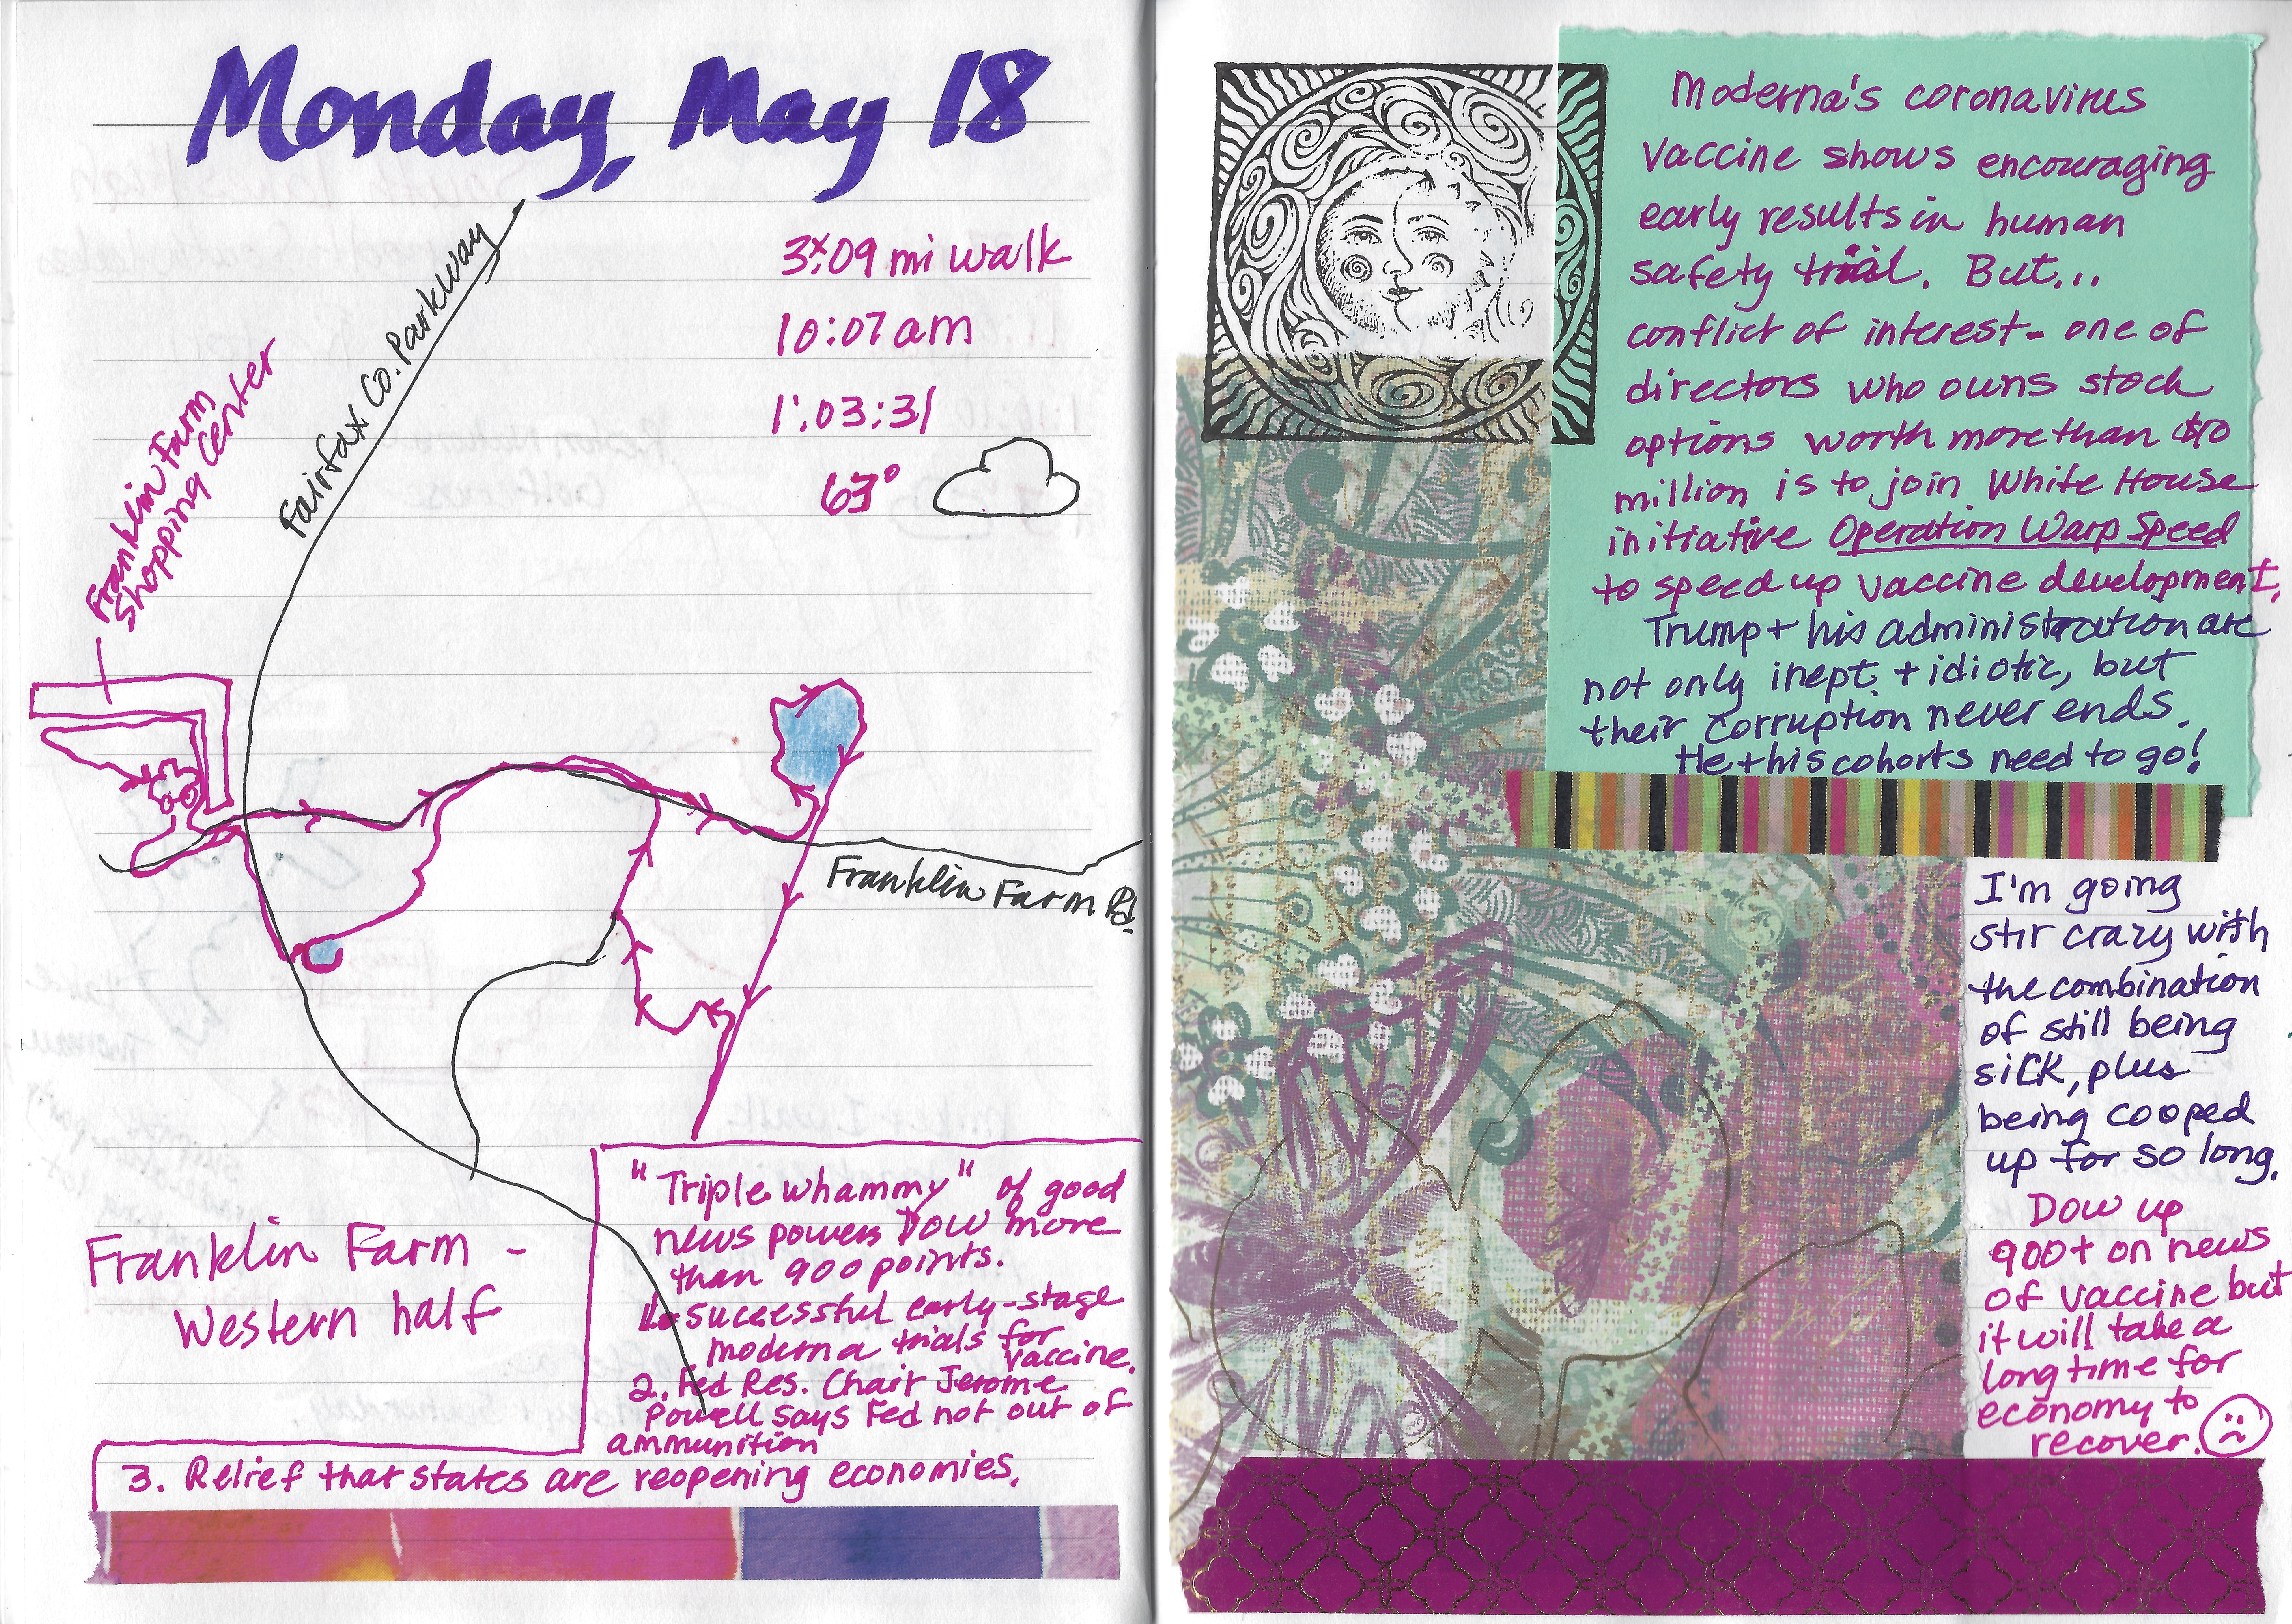 Monday, May 18
3.09 mi walk
10:07 am
1:03:31
63°
Fairfax Co. Parkway
Franklin Farm
Shopping Center
Franklin Farm Rd
Franklin Farm -
Western half
"Triple whammy" of good
news powers Dow more
than 900 points.
1. Successful early-stage
Moderna trials for
vaccine.
2. Fed Res. Chair Jerome
Powell says Fed not out of
ammunition
3. Relief that states are reopening economies.
Moderna's coronavirus
vaccine shows encouraging
early results in human
safety trial. But...
conflict of interest - one of
directors who owns stock
options worth more than $10
million is to join White House
initiative Operation Warp Speed
to speed up vaccine development.
Trump + his administration are
not only inept + idiotic, but
their corruption never ends.
He + his cohorts need to go!
I'm going
stir crazy with
the combination
of still being
sick, plus
being cooped
up for so long.
Dow up
900+ on news
of vaccine but
it will take a
long time for
economy to
recover.